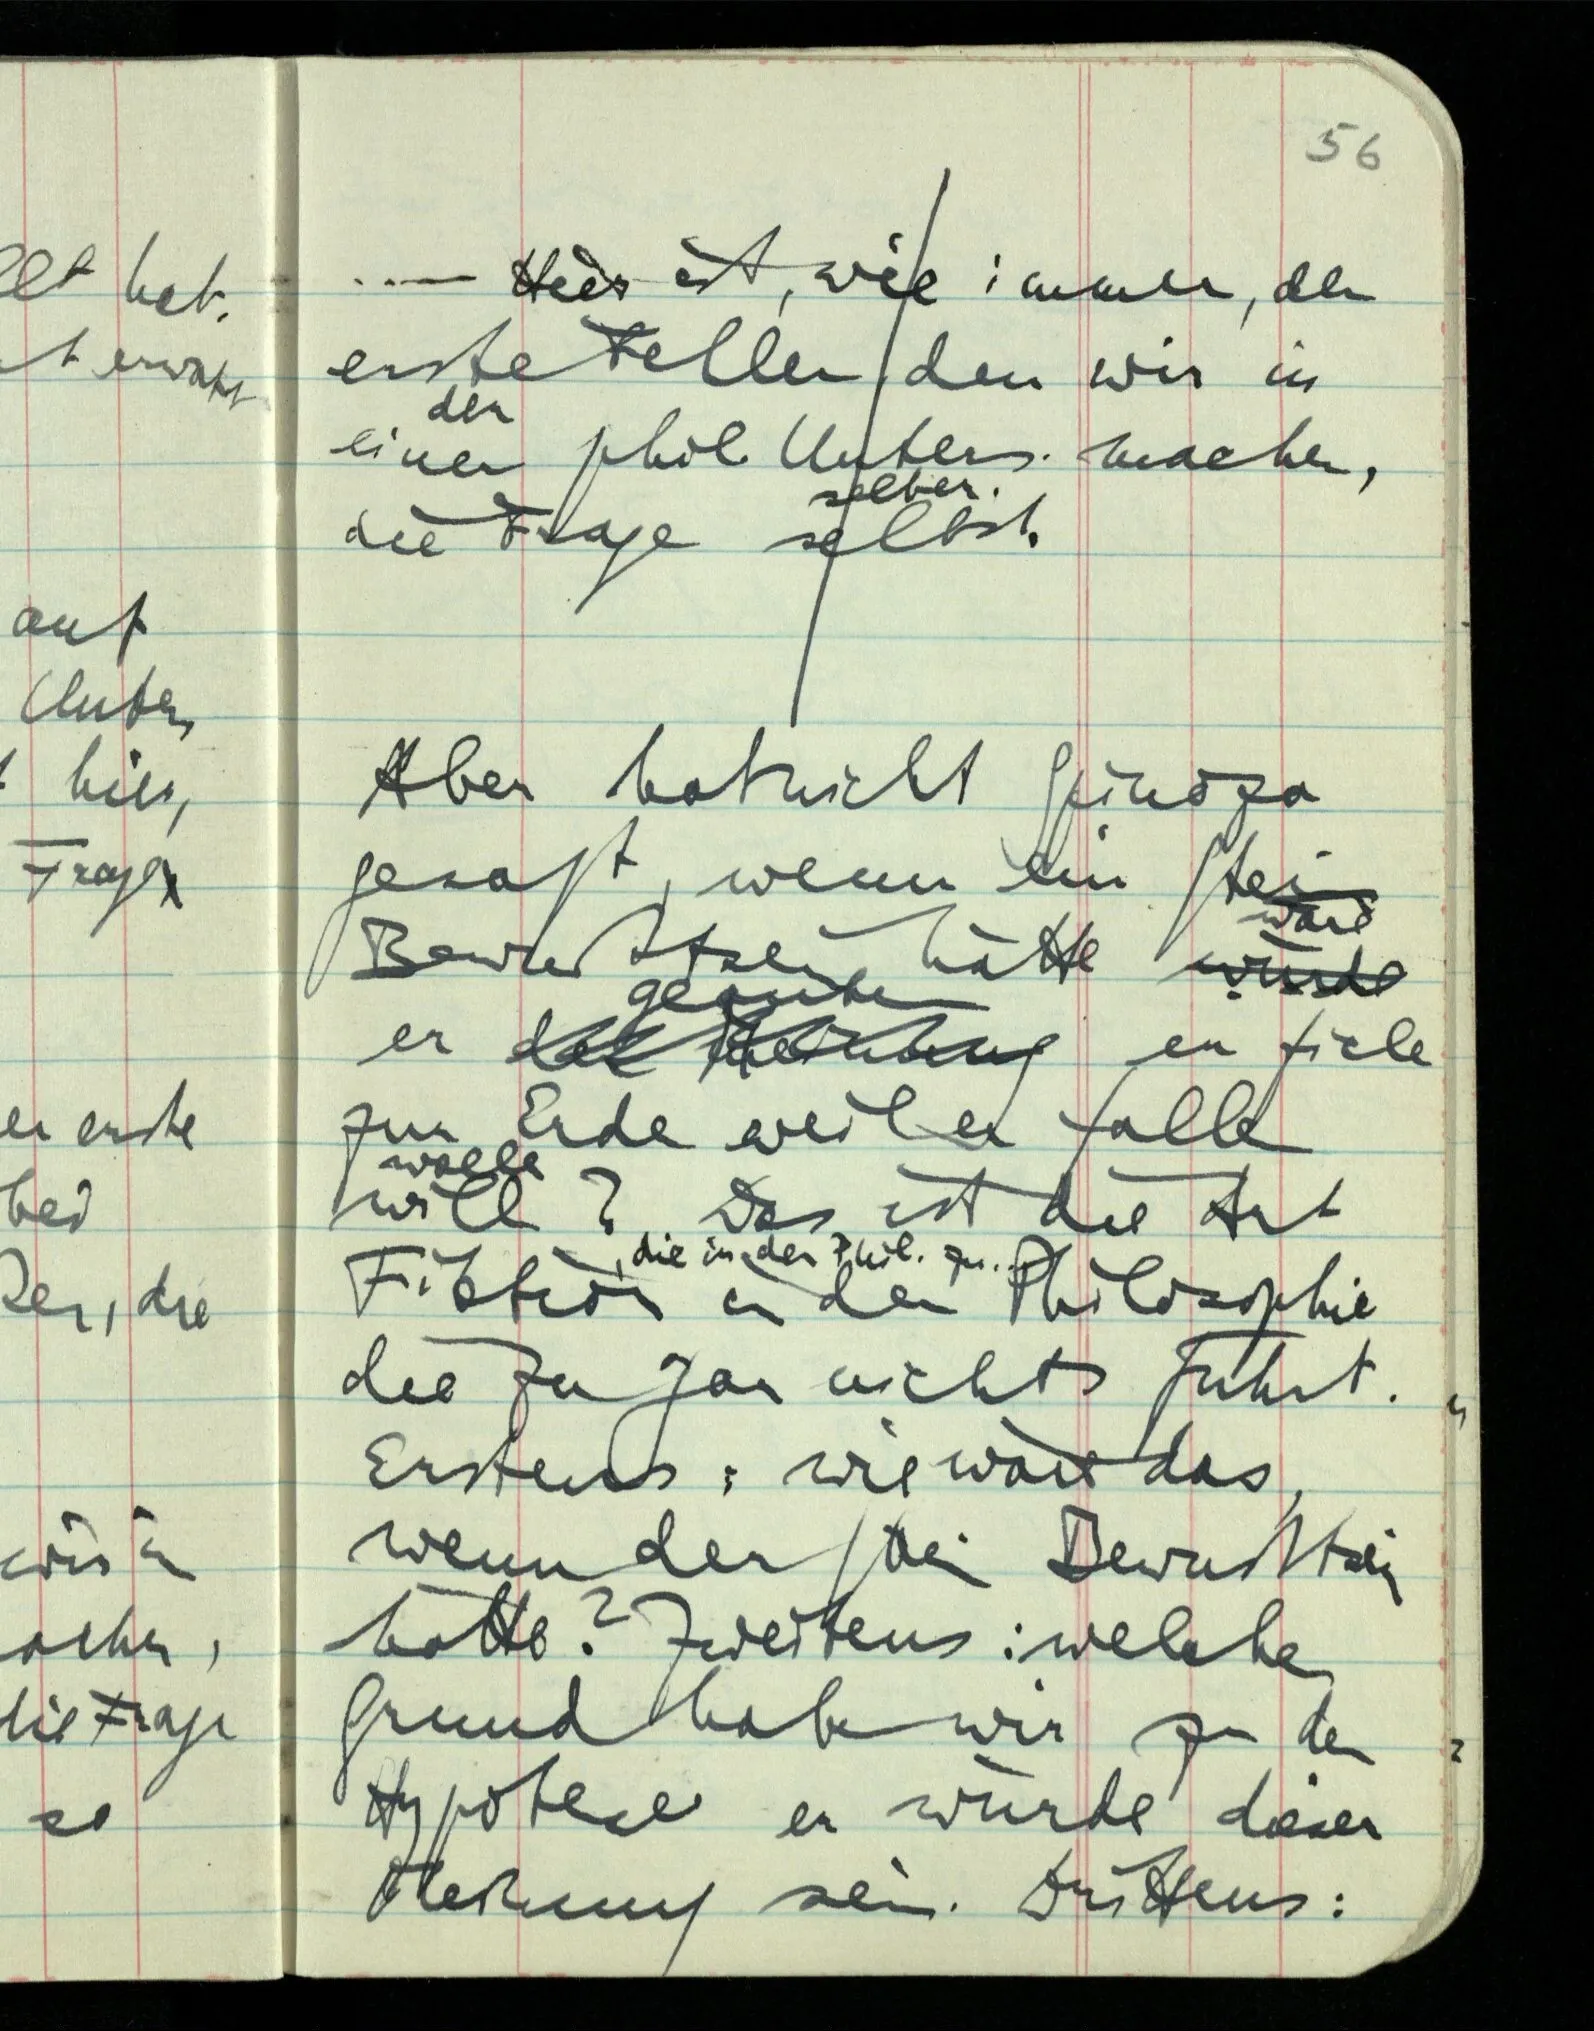 56
llt hat.
auf
Unters
hier,
Frage
er erste
bei
, die
wir in
achen,
die Frage
so
.... Hier ist, wie immer, der
erste Fehler den wir in
der
einer phil. Unters. machen,
selber.
die Frage selbst.
Aber hat nicht Spinoza
gesagt, wenn ein Stein
wäre
Bewußtsein hätte würde
geglaubt
er der Meinung er fiele
zur Erde weil er fallen
wolle
will? Das ist die Art
, die in der Phil. zu...
Fiktion in der Philosophie
die zu gar nichts führt.
Erstens: wie wäre das,
wenn der Stein Bewußtsein
hätte? Zweitens: welchen
Grund haben wir zu der
Hypothese er würde dieser
Meinung sein. Drittens: